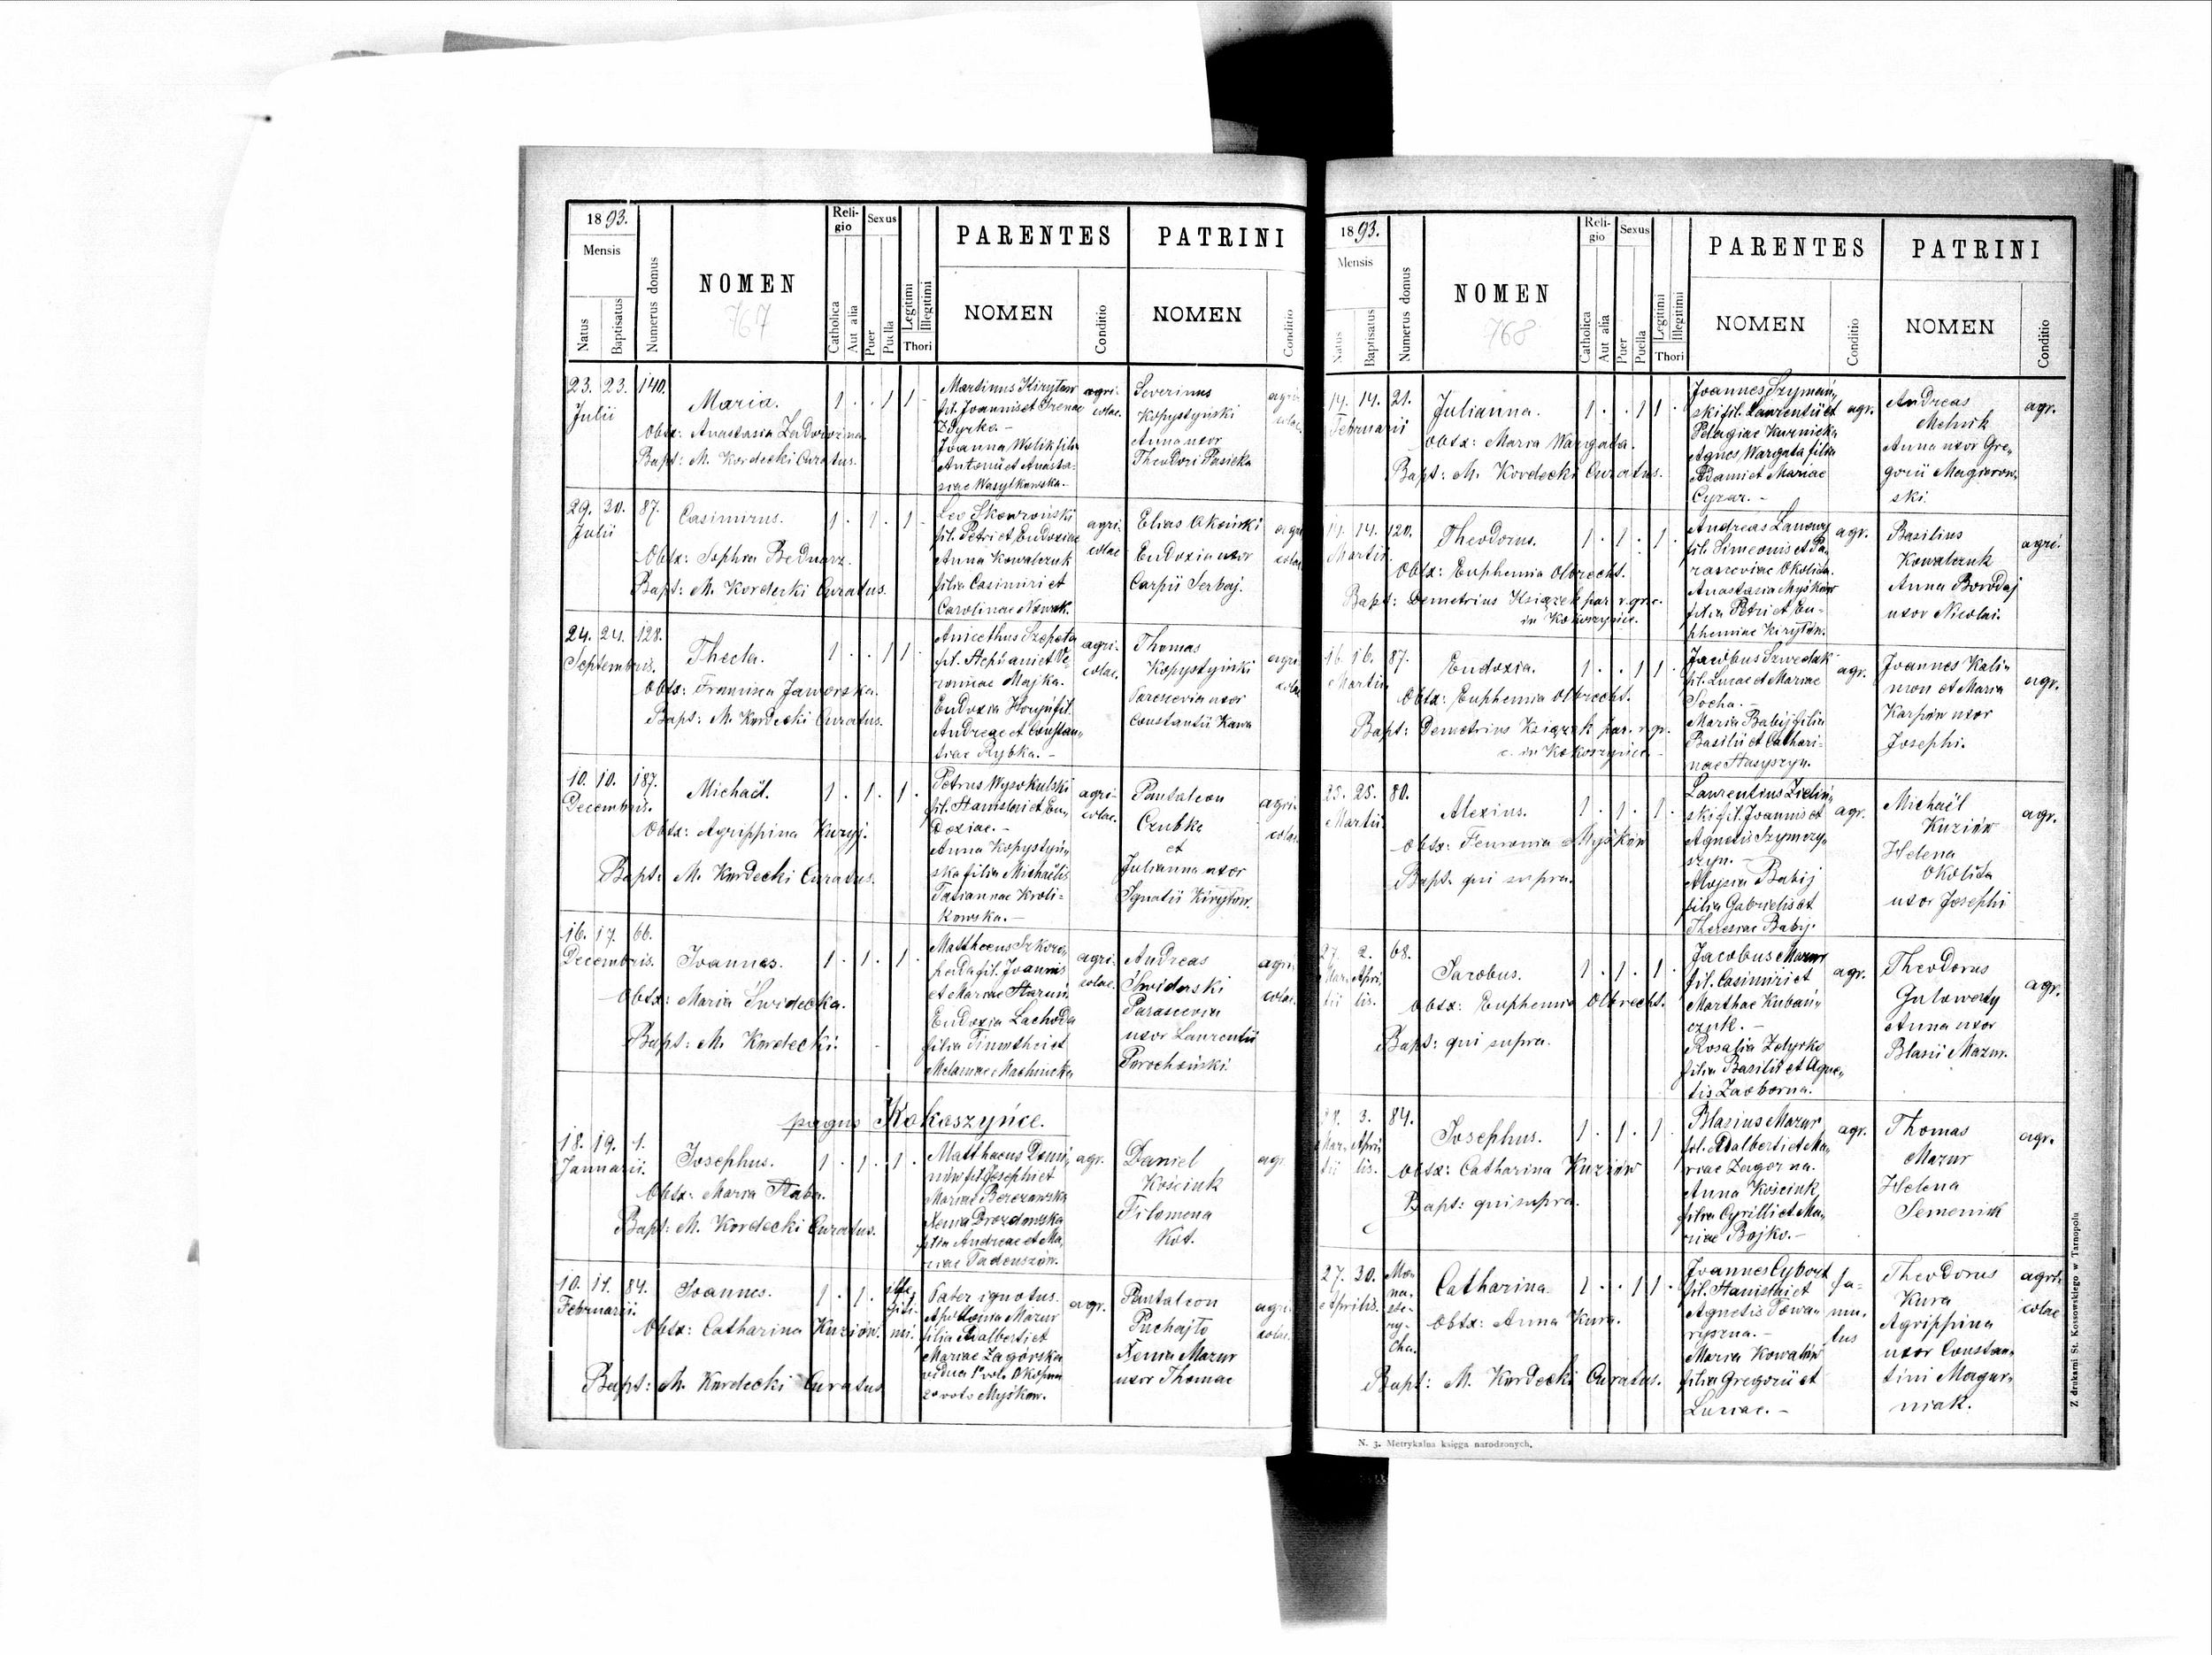 1893.
Mensis
Natus
Baptisatus
Numerus domus
NOMEN
767
Religio
Catholica
Aut alia
Sexus
Puer
Puella
Legitimi
Illegitimi
Thori
PARENTES
NOMEN
Conditio
PATRINI
NOMEN
Conditio
23. 23. 140.
Julii
Maria.
1 . . 1 1
Obstx: Anastasia Zadorozna
Bapt: M. Kordecki Curatus.
Martinus Kirytow
fil. Joannis et Irenae
Zdyrko.-
Joanna Wolik filia
Antonii et Anasta-
siae Wasylkowska.-
agri-
colae.
Severinus
Kopystyński
Anna uxor
Theodori Pasieka
29. 30. 87.
Julii
Casimirus.
1 . 1 . 1 .
Obstx: Sophia Bednarz.
Bapt: M. Kordecki Curatus.
Leo Skowroński
fil. Petri et Eudoxiae
Anna Kowalczuk
filia Casimiri et
Carolinae Nowak.
agri-
colae
Elias Okoński
Eudoxia uxor
Carpii Serbaj.
24. 24. 128.
Septembris.
Thecla.
1 . . 1 1
Obstx: Francisca Jaworska.
Bapt: M. Kordecki Curatus.
Anicethus Szepeta
fil. Stephani et Ve-
ronicae Majka.
Eudoxia Horyń fil.
Andreae et Constan-
tiae Rybka.-
agri-
colae.
Thomas
Kopystyński
Parascevia uxor
Constantii Kawa
10. 10. 187.
Decembris.
Michaël.
1 . 1 . 1 .
Obstx: Agrippina Kuryj.
Bapt: M. Kordecki Curatus.
Petrus Wysokulski
fil. Stanislai et Eu-
doxiae.-
Anna Kopystyń-
ska filia Michaëlis
Tatiannae Kroli-
kowska.-
agri-
colae.
Pantaleon
Czubka
et
Julianna uxor
Ignatii Kirytow.
16. 17. 66.
Decembris.
Joannes.
1 . 1 . 1 .
Obstx: Maria Świdecka.
Bapt: M. Kordecki.
Matthaeus
fil. Joannis
et Mariae
Eudoxia Lachoda
filia Timothei et
Melaniae
agri-
colae.
Andreas
Świderski
Parascevia
uxor Laurentii
Prochoński.
pagus Kokoszyńce.
18. 19. 1.
Januarii.
Josephus.
1 . 1 . 1 .
Obstx: Maria Staba.
Bapt: M. Kordecki Curatus.
Matthaeus
fil. Josephi et
Mariae Berezowska
Xenia Drozdowska
filia Andreae et Ma-
riae Tadeuszów.
agr.
Daniel
Kościuk
Filomena
Kot.
agr
10. 11. 84.
Februarii.
Joannes.
1 . 1 . ille-
giti-
mi.
Obstx: Catharina Kuziów.
Bapt: M. Kordecki Curatus
Pater ignotus.
Apolonia Mazur
filia Adalberti et
Mariae Zagórska
vidua 1° voto
2° voto Myśkow.
agr.
Pantaleon
Puchajło
Xenia Mazur
uxor Thomae
1893.
Mensis
Natus
Baptisatus
Numerus domus
NOMEN
768
Religio
Catholica
Aut alia
Sexus
Puer
Puella
Legitimi
Illegitimi
Thori
PARENTES
NOMEN
Conditio
PATRINI
NOMEN
Conditio
14. 14. 21.
Februarii
Julianna.
1 . . 1 1 .
Obstx: Maria Wargata.
Bapt: M. Kordecki Curatus.
Joannes Szymań-
ski fil. Laurentii et
Pelagiae Kurnicka
Agnes Wargata filia
Adami et Mariae
Cyzar.-
agr.
Andreas
Melnik
Anna uxor Gre-
gorii Magierow-
ski.
agr.
14. 14. 120.
Martii.
Theodorus.
1 . 1 . 1 .
Obstx: Euphemia Olbrecht.
Bapt: Demetrius Książek par. r. gr. c.
in Kokoszyńce.
Andreas Lanowy
fil. Simeonis et Pa-
rasceviae Okolita.
Anastasia Myśków
filia Petri et Eu-
phemiae Kirytów.
agr.
Basilius
Kowalczuk
Anna Borodaj
uxor Nicolai.
agri.
16. 16. 87.
Martii.
Eudoxia.
1 . . 1 1 .
Obstx: Euphemia Olbrecht.
Bapt: Demetrius Książek par. r. gr.
c. in Kokoszyńce.
Jacobus Szwedak
fil. Lucae et Mariae
Socha.-
Maria Babij filia
Basilii et Cathari-
nae Stasyszyn.
agr.
Joannes Kali-
mon et Maria
Karpów uxor
Josephi.
agr.
25. 25. 80.
Martii.
Alexius.
1 . 1 . 1 .
Obstx: Fenronia Myśków
Bapt. qui supra.
Laurentius Zieliń-
ski fil. Joannis et
Agnetis Szymczy-
szyn.-
Aloysia Babij
filia Gabrielis et
Theresiae Babij.
agr.
Michaël
Kuziów
Helena
Okolita
uxor Josephi
agr.
27. 2. 68.
Mar- Apri-
tii lis.
Jacobus.
1 . 1 . 1 .
Obstx: Euphemia Olbrecht.
Bapt: qui supra.
Jacobus Mazur
fil. Casimiri et
Marthae Kubań-
czuk.-
Rosalia Zdyrko
filia Basilii et Agne-
tis Zaoborna.
agr.
Theodorus
Gulowaty
Anna uxor
Blasii Mazur.
agr.
28. 3. 84.
Mar- Apri-
tii lis.
Josephus.
1 . 1 . 1 .
Obstx: Catharina Kuziów
Bapt: qui supra.
Blasius Mazur
fil. Adalberti et Ma-
riae Zagorna.
Anna Kościuk
filia Cyrilli et Ma-
riae Bojko.-
agr.
Thomas
Mazur
Helena
Semeniuk
agr.
27. 30. Mo-
Aprilis. na-
ste-
ry-
cha.
Catharina.
1 . . 1 1 .
Obstx: Anna Kura.
Bapt: M. Kordecki Curatus.
Joannes Cybort
fil. Stanislai et
Agnetis Towa-
ryszna.-
Maria Kowalów
filia Gregorii et
Luciae.-
fa-
mu-
lus
Theodorus
Kura
Agrippina
uxor Constan-
tini Magur-
niak.
agri-
colae
N. 3. Metrykalna księga narodzonych.
Z drukarni St. Kossowskiego w Tarnopolu